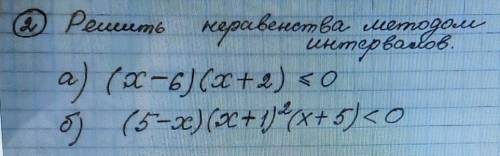 ② Решить неравенства методом
интервалов.
а) (x-6)(x+2) ≤ 0
б) (5-x)(x+1)²(x+5) < 0